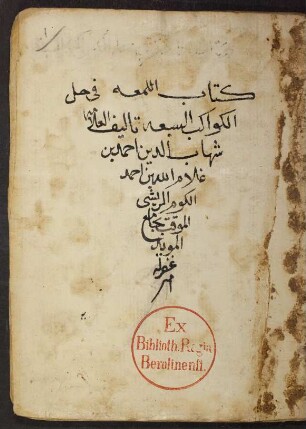 كتاب اللمعه فى حل
الكواكب السبعه تاليف
شهاب الدين احمد بن
غلام الله بن احمد
الكوم الريشى
الموقت بجامع
المويد
غفر له
Ex
Biblioth. Regia
Berolinensi.